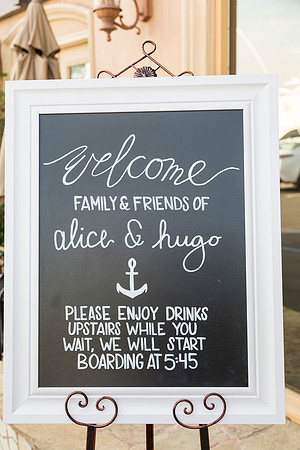 welcome
FAMILY & FRIENDS OF
alice & hugo
PLEASE ENJOY DRINKS
UPSTAIRS WHILE YOU
WAIT, WE WILL START
BOARDING AT 5:45